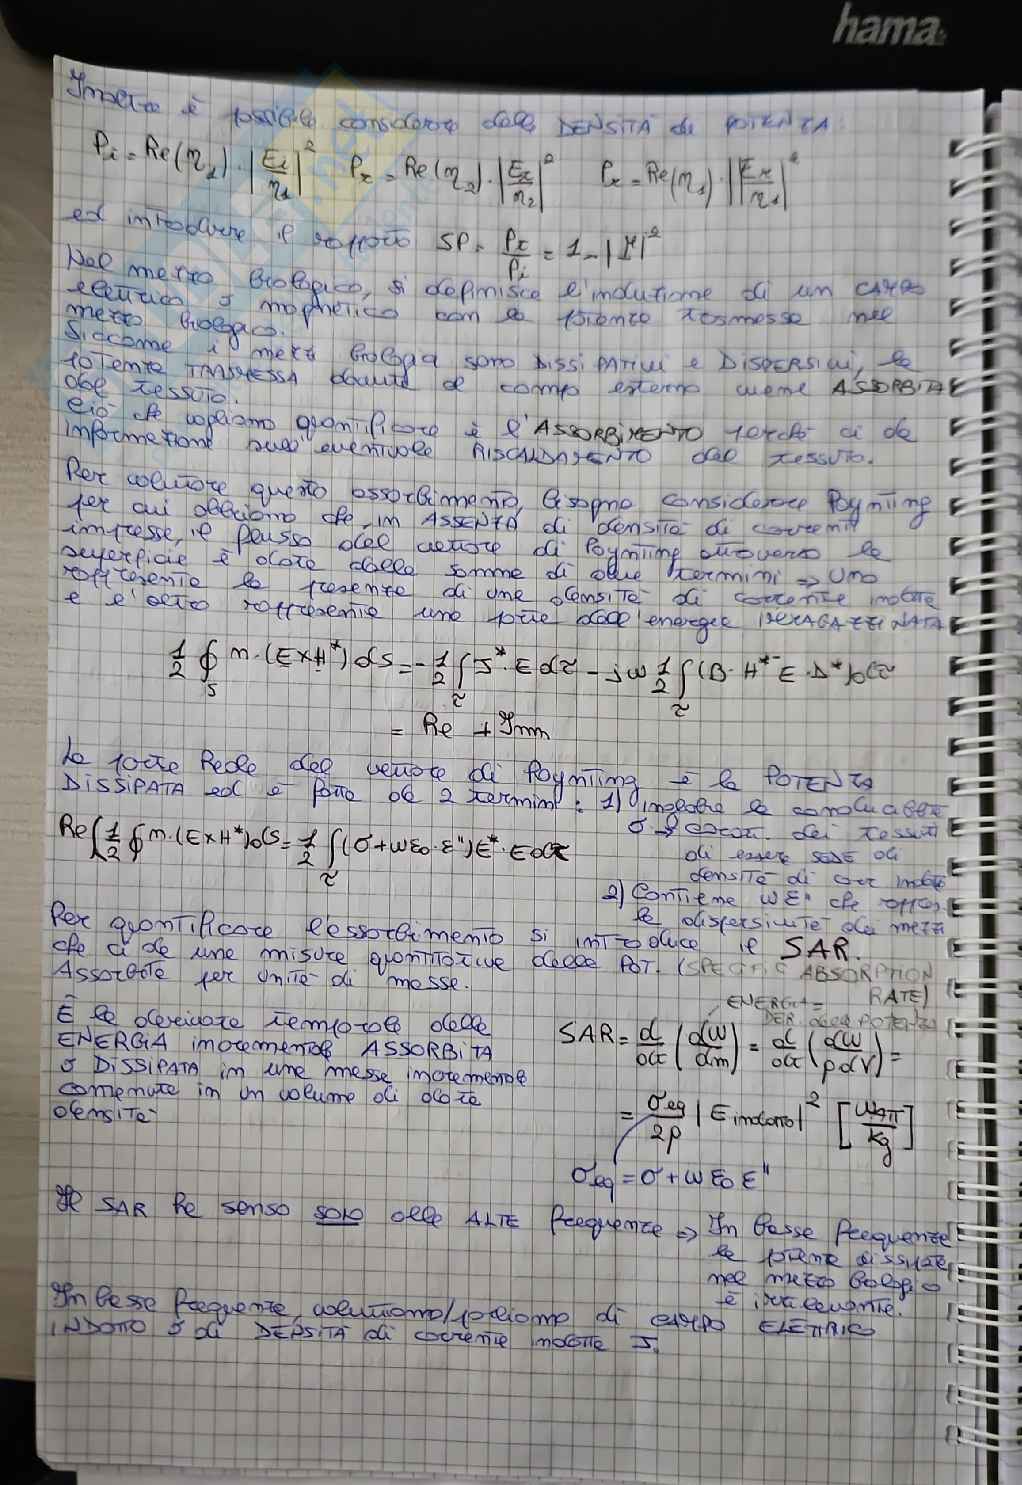 hama
Inoltre è possibile considerare delle DENSITÀ di POTENZA:
Pi = Re(η1)·|Ei/η1|² Pt = Re(η2)·|Et/η2|² Pr = Re(η1)·|Er/η1|²
ed introdurre il rapporto SP = Pt/Pi = 1-|Γ|²
Nel mezzo biologico, si definisce l'induzione di un CAMPO
elettrico o magnetico con la potenza trasmessa nel
mezzo biologico.
Siccome i mezzi biologici sono DISSIPATIVI e DISPERSIVI, la
POTENZA TRASMESSA dovuta al campo esterno viene ASSORBITA
dal tessuto.
Ciò che vogliamo quantificare è l'ASSORBIMENTO perché ci dà
informazioni sull'eventuale RISCALDAMENTO del tessuto.
Per valutare questo assorbimento, bisogna considerare Poynting
per cui abbiamo che, in ASSENZA di densità di correnti
impresse, il flusso del vettore di Poynting attraverso la
superficie è dato dalla somma di due termini ⇒ Uno
rappresenta la presenza di una densità di corrente indotta
e l'altro rappresenta una parte dell'energia IMMAGAZZINATA
1/2 ∮s n·(E×H*) dS = -1/2 ∫τ J*·E dτ - jω 1/2 ∫τ (B·H* - E·D*) dτ
= Re + Imm
La parte Reale del vettore di Poynting è la POTENZA
DISSIPATA ed è fatta da 2 termini: 1) ingloba la conducibilità
σ → caratt. dei tessuti
di essere SEDE di
densità di corr indotta
Re(1/2 ∮ n·(E×H*) dS = 1/2 ∫τ (σ+ωε0·ε'')E*·E dτ
2) Contiene ωε'' che rappres.
la dispersività dei mezzi
Per quantificare l'assorbimento si introduce il SAR
che ci dà una misura quantitativa della POT. (SPECIFIC ABSORPTION
RATE)
Assorbita per unità di massa.
ENERGIA =
DER. della POTENZA
È la derivata temporale della
ENERGIA incrementale ASSORBITA
o DISSIPATA in una massa incrementale
contenuta in un volume di data
densità
SAR = d/dt (dW/dm) = d/dt (dW/ρdV) =
= σeq/2ρ |E indotto|² [WATT/kg]
σeq = σ + ωε0 ε''
Il SAR ha senso SOLO alle ALTE frequenze ⇒ In basse frequenze
la potenza dissipata
nel mezzo biologico
è irrilevante.
In basse frequenze, valutiamo/parliamo di CAMPO ELETTRICO
INDOTTO o di DENSITÀ di corrente indotta J.